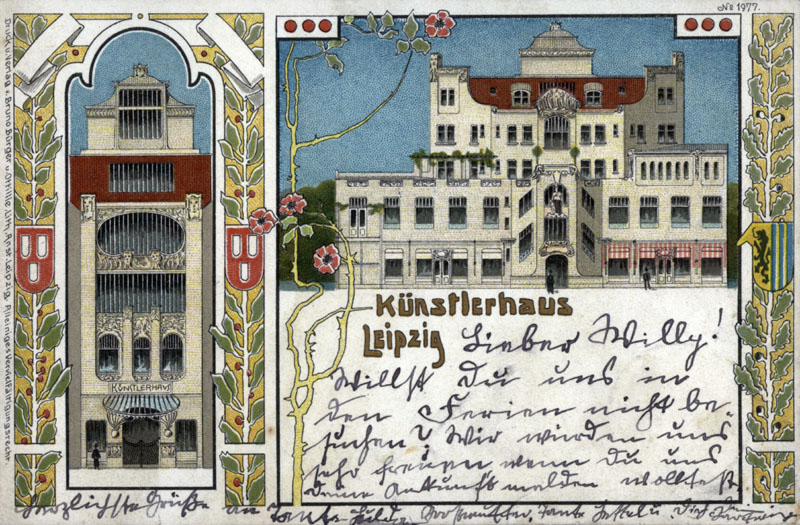 № 1977.
Druck u. Verlag v. Bruno Bürger u. Ottillie Lith. Anst. Leipzig. Alleiniges Vervielfältigungsrecht.
KÜNSTLERHAUS
Künstlerhaus
Leipzig
Lieber Willy!
Willst du uns in
den Ferien nicht be-
suchen? Wir würden uns
sehr freuen wenn du uns
deine Ankunft melden wolltest
Herzlichste Grüße an Tante Großmutter, Tante